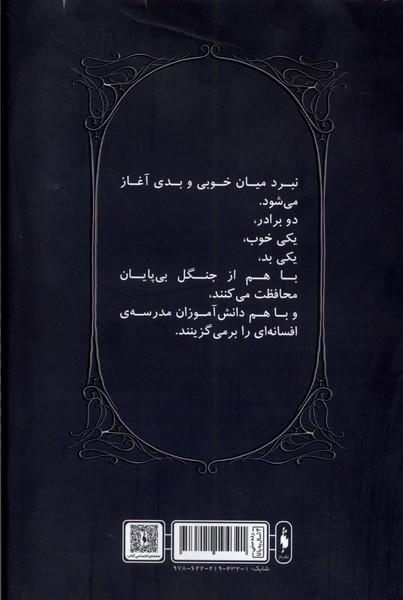 نبرد میان خوبی و بدی آغاز
می‌شود.
دو برادر،
یکی خوب،
یکی بد،
با هم از جنگل بی‌پایان
محافظت می‌کنند،
و با هم دانش‌آموزان مدرسه‌ی
افسانه‌ای را برمی‌گزینند.
صفحه‌ی اختصاصی کتاب
شابک: ۹۷۸-۶۲۲-۲۱۹-۴۳۲-۱